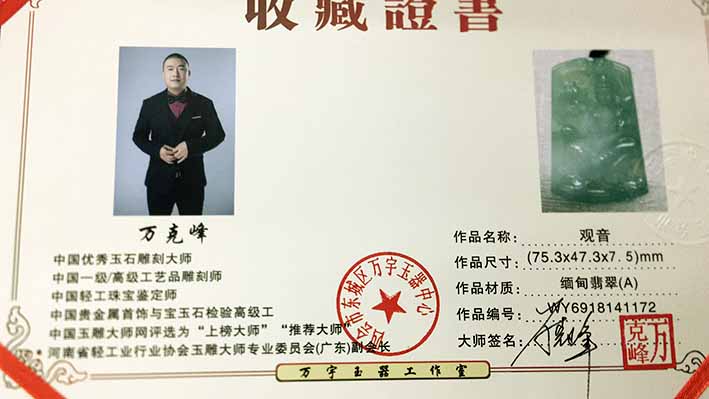 收藏證書
万克峰
中国优秀玉石雕刻大师
中国一级/高级工艺品雕刻师
中国轻工珠宝鉴定师
中国贵金属首饰与宝玉石检验高级工
中国玉雕大师网评选为“上榜大师”“推荐大师”
河南省轻工业行业协会玉雕大师专业委员会(广东)副会长
四会市东城区万宇玉器中心
作品名称: 观音
作品尺寸: (75.3x47.3x7.5)mm
作品材质: 缅甸翡翠(A)
作品编号: WY6918141172
大师签名:
万克峰
万宇玉器工作室